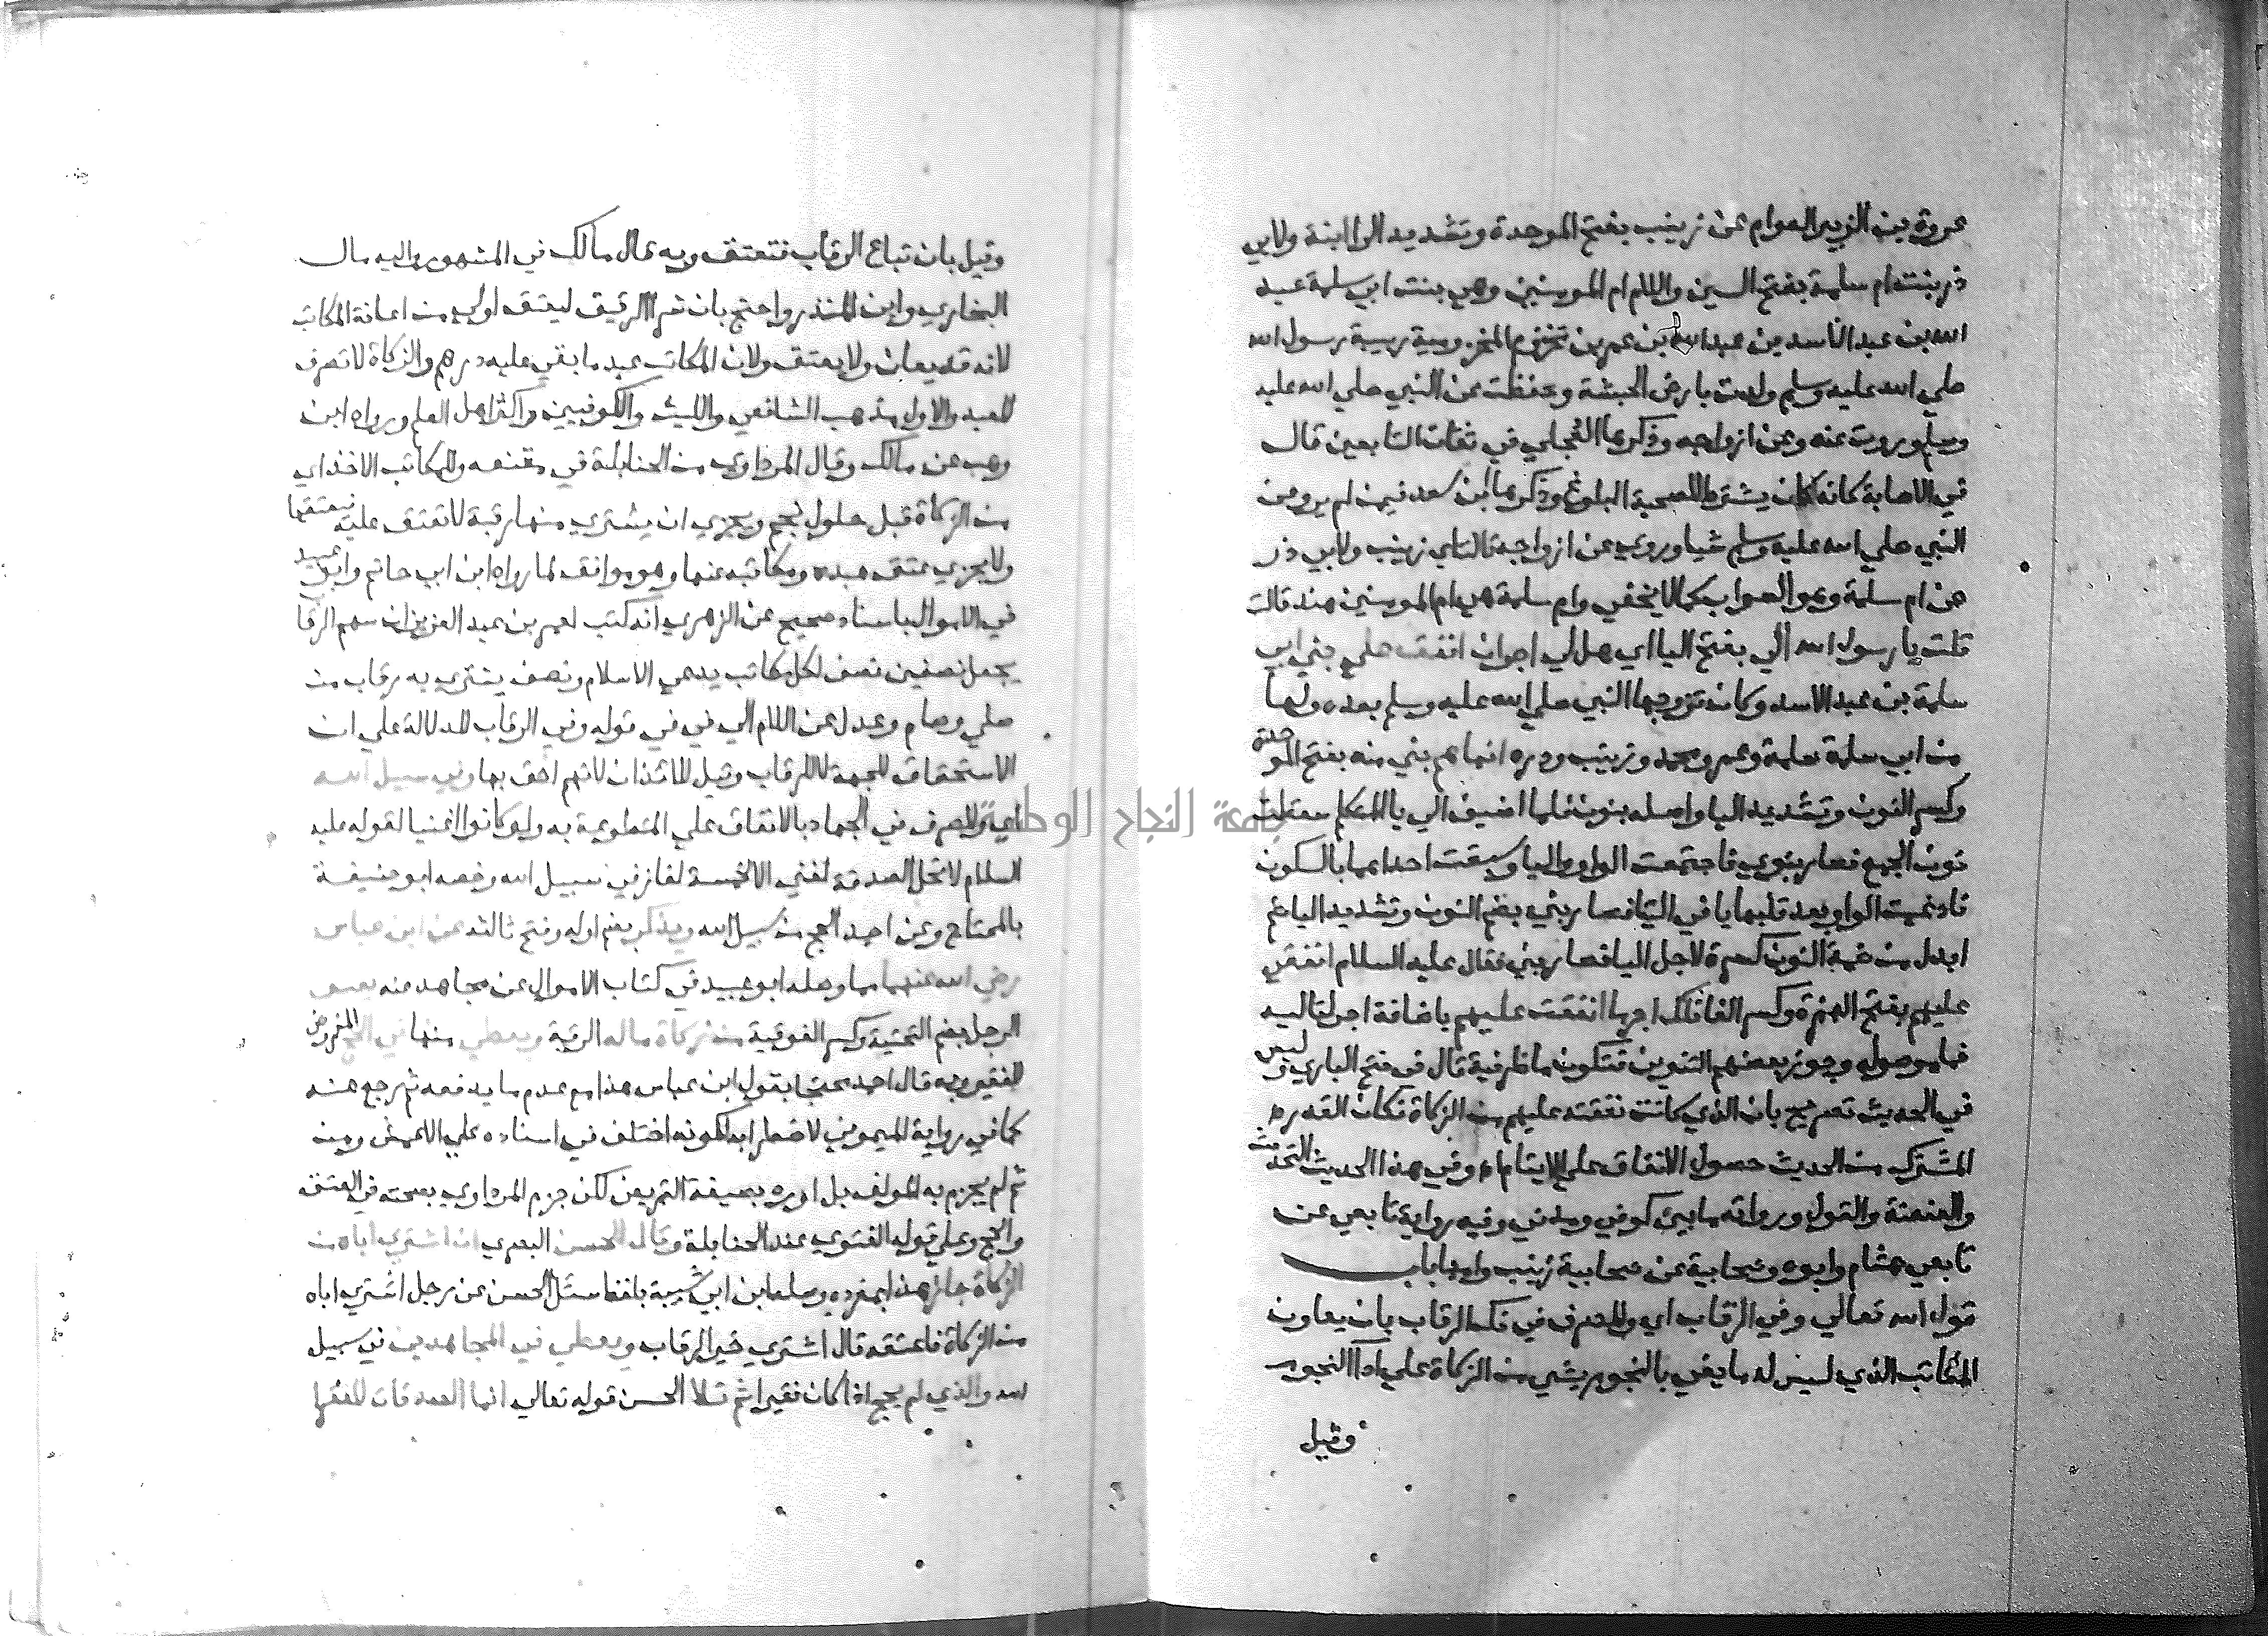 عروة بن الزبير العوام عن زينب بفتح الموحدة وتشديد الرا ابنة ولابي
ذر بنت ام سلمة بفتح السين واللام ام المومنين وهي بنت ابي سلمة عبد
الله بن عبد الاسد بن عبد الله بن عمر بن مخزوم المخزومية ربيبة رسول الله
صلي الله عليه وسلم ولدت بارض الحبشة وحفظت عن النبي صلي الله عليه
وسلم وروت عنه وعن ازواجه وذكرها العجلي في ثقات التابعين قال
في الاصابة كانه كان يشترط للصحبة البلوغ وذكرها ابن سعد فيمن لم يرو عن
النبي صلي الله عليه وسلم شيا وروي عن ازواجه قالت اي زينب ولابي ذر
عن ام سلمة وهو الصواب كما لا يخفي وام سلمة هي ام المومنين هند قالت
قلت يا رسول الله الي بفتح اليا اي هل لي اجر ان انفقت علي بني ابي
سلمة بن عبد الاسد وكان تزوجها النبي صلي الله عليه وسلم بعده ولها
من ابي سلمة سلمة وعمر ومحمد وزينب ودره انما هم بني منه بفتح الموحدة
وكسر النون وتشديد اليا واصله بنون فلما اضيف الي يا المتكلم سقطت
نون الجمع فصار بنوي فاجتمعت الواو واليا وسبقت احداهما بالسكون
فادغمت الواو بعد قلبها يا في اليا فصار بني بضم النون وتشديد اليا ثم
ابدل من ضمة النون كسرة لاجل اليا فصار بني فقال عليه السلام انفقي
عليهم بفتح الهمزة وكسر الفا فلك اجر ما انفقت عليهم باضافة اجر لتاليه
فما موصوله وجوز بعضهم التنوين فتكون ما ظرفية قال في فتح الباري وليس
في الحديث تصريح بان الذي كانت تنفقه عليهم من الزكاة فكان القدر
المشترك من الحديث حصول الانفاق علي الايتام وفي هذا الحديث التحديث
والعنعنة والقول ورواته ما بين كوفي ومدني وفيه رواية تابعي عن
تابعي هشام وابوه وصحابية عن صحابية زينب وامها باب
قول الله تعالي وفي الرقاب اي وللصرف في فك الرقاب بان يعاون
المكاتب الذي ليس له ما يفي بالنجوم بشي من الزكاة علي ادا النجوم
وقيل
وقيل بان تباع الرقاب فتعتق وبه قال مالك في المشهور واليه مال
البخاري وابن المنذر واحتج بان شرا الرقيق ليعتق اولي من اعانة المكاتب
لانه قد يعان ولا يعتق ولان المكاتب عبد ما بقي عليه درهم والزكاة لا تصرف
للعبد والاول مذهب الشافعي والليث والكوفيين واكثر اهل العلم ورواه ابن
وهب عن مالك وقال المرداوي من الحنابلة في مقنعه وللمكاتب الاخذ اي
من الزكاة قبل حلول نجم ويجزي ان يشتري منها رقبة لا تعتق عليه فيعتقها
ولا يجزي عتق عبده ومكاتبه عنها وهو موافق لما رواه ابن ابي حاتم وابو عبيد
في الاموال باسناد صحيح عن الزهري انه كتب لعمر بن عبد العزيز ان سهم الرقا
يجعل نصفين نصف لكل مكاتب يدعي الاسلام ونصف يشتري به رقاب من
صلي وصام وعدل عن اللام الي في في قوله وفي الرقاب للدلالة علي ان
الاستحقاق للجهة لا للرقاب وقيل للايذان لانهم احق بها وفي سبيل الله
اي وللصرف في الجهاد بالانفاق علي المتطوعة به ولو كانوا اغنيا لقوله عليه
السلام لا تحل الصدقة لغني الا لخمسة لغاز في سبيل الله وخصه ابو حنيفة
بالمحتاج وعن احمد الحج من سبيل الله ويذكر بضم اوله وفتح ثالثه عن ابن عباس
رضي الله عنهما مما وصله ابو عبيد في كتاب الاموال عن مجاهد عنه يعتق
الرجل بضم التحتية وكسر الفوقية من زكاة ماله الرقبة ويعطي منها في الحج المفروض
للفقير وبه قال احمد محتجا بقول ابن عباس هذا مع عدم ما يدفعه ثم رجع عنه
كما في رواية الميموني لاضطرابه لكونه اختلف في اسناده علي الاعمش ومن
ثم لم يجزم به المولف بل اورده بصيغة التمريض لكن جزم المرداوي بصحته في العتق
والحج وعلي قوله الفتوي عند الحنابلة وقال الحسن البصري ان اشتري اباه من
الزكاة جاز هذا بمفرده وصله ابن ابي شيبة بلفظ سئل الحسن عن رجل اشتري اباه
من الزكاة فاعتقه قال اشتري خير الرقاب ويعطي في المجاهدين في سبيل
الله والذي لم يحج اذا كان فقيرا ثم تلا الحسن قوله تعالي انما الصدقات للفقرا
جامعة النجاح الوطنية